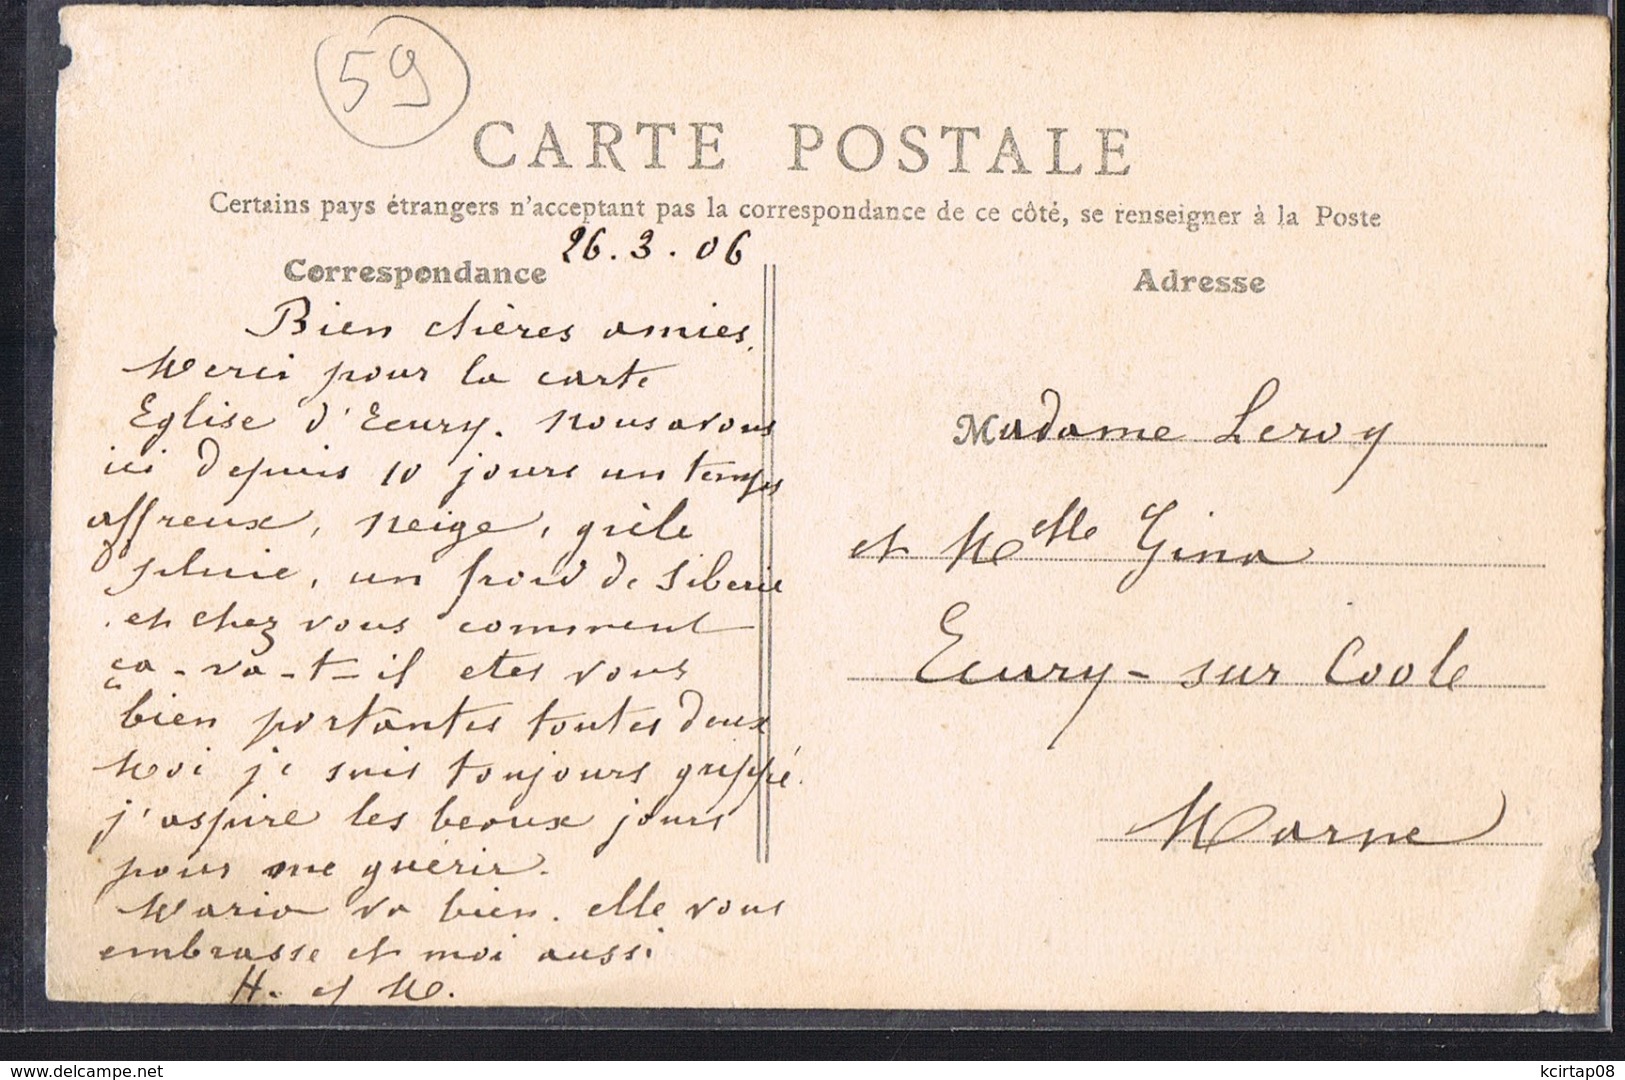 59
CARTE POSTALE
Certains pays étrangers n'acceptant pas la correspondance de ce côté, se renseigner à la Poste
26.3.06
Correspondance
Bien chères amies.
Merci pour la carte
Eglise d'Ecury. Nous avons
ici depuis 10 jours un temps
affreux, neige, grèle
pluie, un froid de Siberie
et chez vous comment
ça-va-t-il etes vous
bien portantes toutes deux
Moi je suis toujours grippé.
j'aspire les beaux jours
pour me guérir.
Maria va bien. elle vous
embrasse et moi aussi
H. et M.
Adresse
Madame Leroy
et Melle Gina
Ecury-sur Coole
Marne
www.delcampe.net
kcirtap08